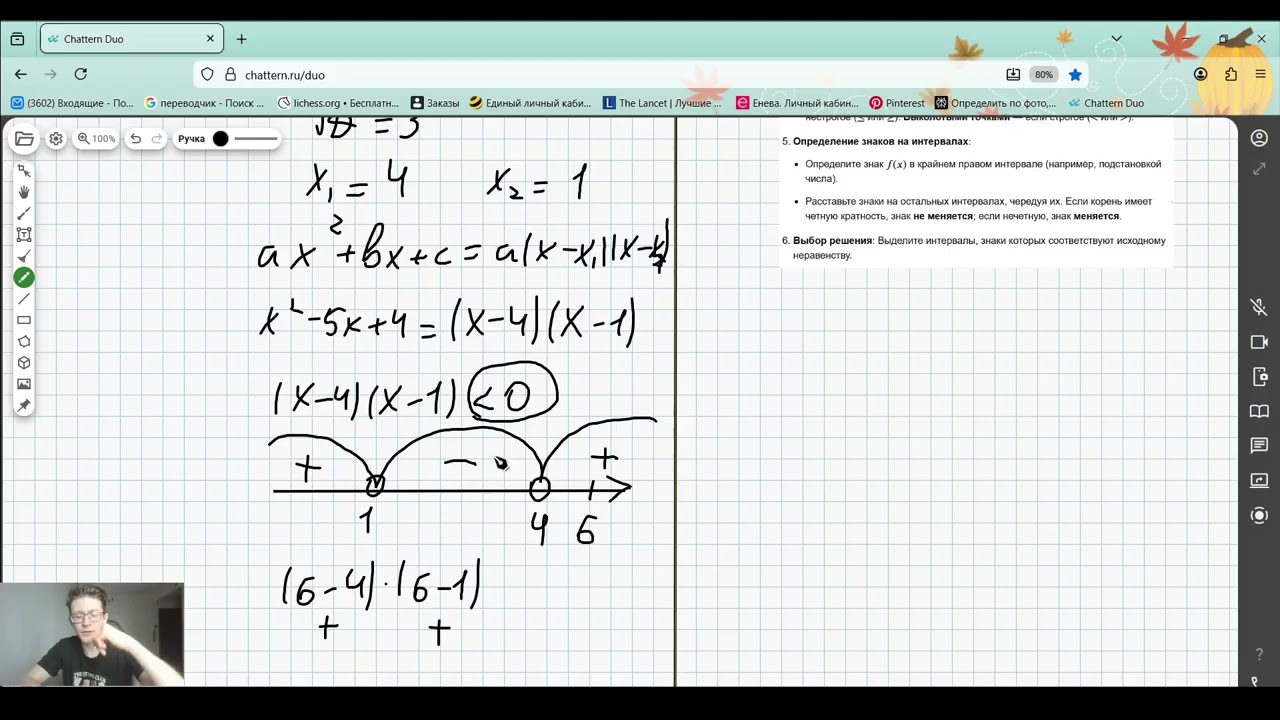 Chattern Duo
chattern.ru/duo
80%
(3602) Входящие - По...
переводчик - Поиск ...
lichess.org • Бесплатн...
Заказы
Единый личный каби...
The Lancet | Лучшие ...
Енева. Личный кабин...
Pinterest
Определить по фото,...
Chattern Duo
100%
Ручка
= 3
x₁ = 4 x₂ = 1
ax² + bx + c = a(x - x₁)(x - x₂)
x² - 5x + 4 = (x - 4)(x - 1)
(x - 4)(x - 1) < 0
+ − +
1 4 6
(6 - 4) · (6 - 1)
+ +
нестрогое (≤ или ≥). Выколотыми точками — если строгое (< или >).
5. Определение знаков на интервалах:
• Определите знак f(x) в крайнем правом интервале (например, подстановкой
числа).
• Расставьте знаки на остальных интервалах, чередуя их. Если корень имеет
четную кратность, знак не меняется; если нечетную, знак меняется.
6. Выбор решения: Выделите интервалы, знаки которых соответствуют исходному
неравенству.